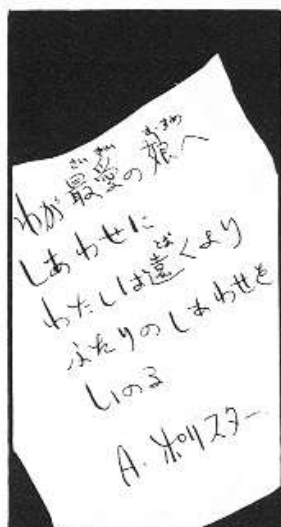 わが最愛の娘へ
しあわせに
わたしは遠くより
ふたりのしあわせを
いのる
A.ポリスター